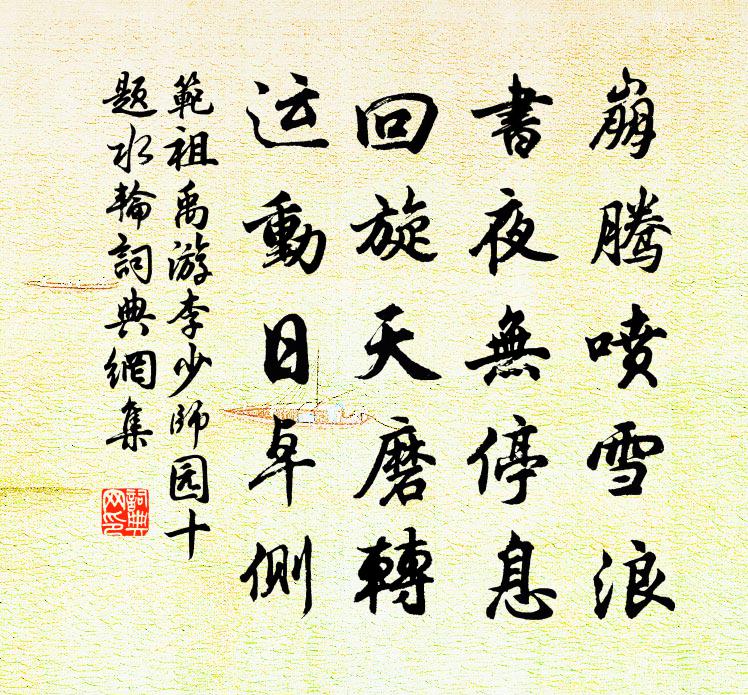 崩騰喷雪浪
書夜無停息
回旋天磨轉
运動日车側
範祖禹游李少師园十
题水輪詞典網集
詞典网印